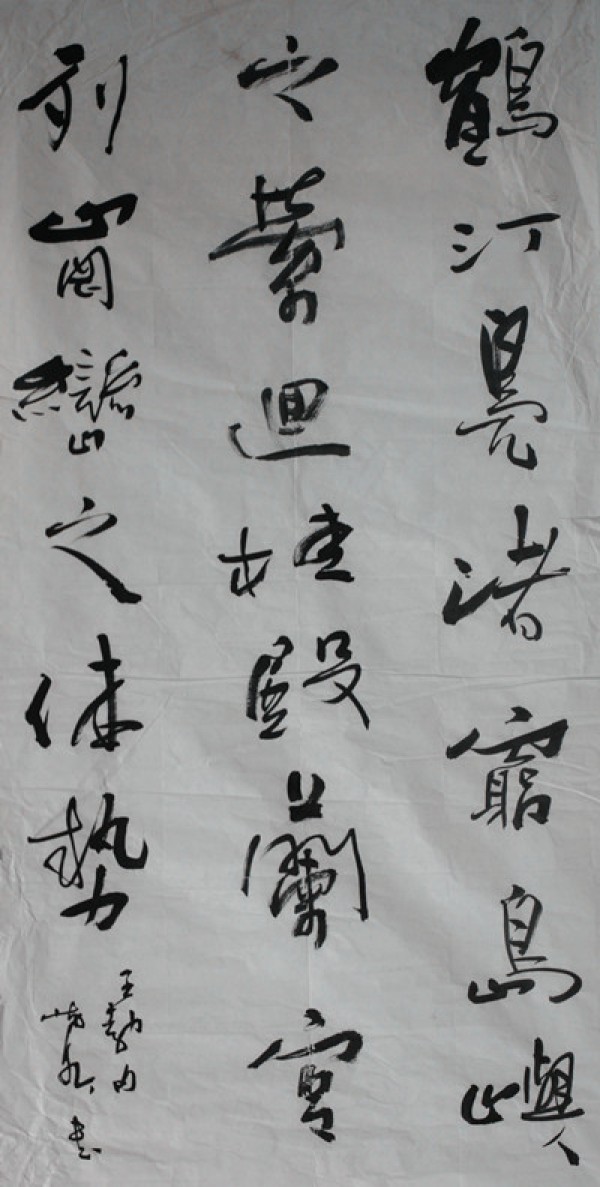 鶴汀鳧渚窮島嶼
之縈迴桂殿蘭宮
列崗巒之体勢
王勃句
書